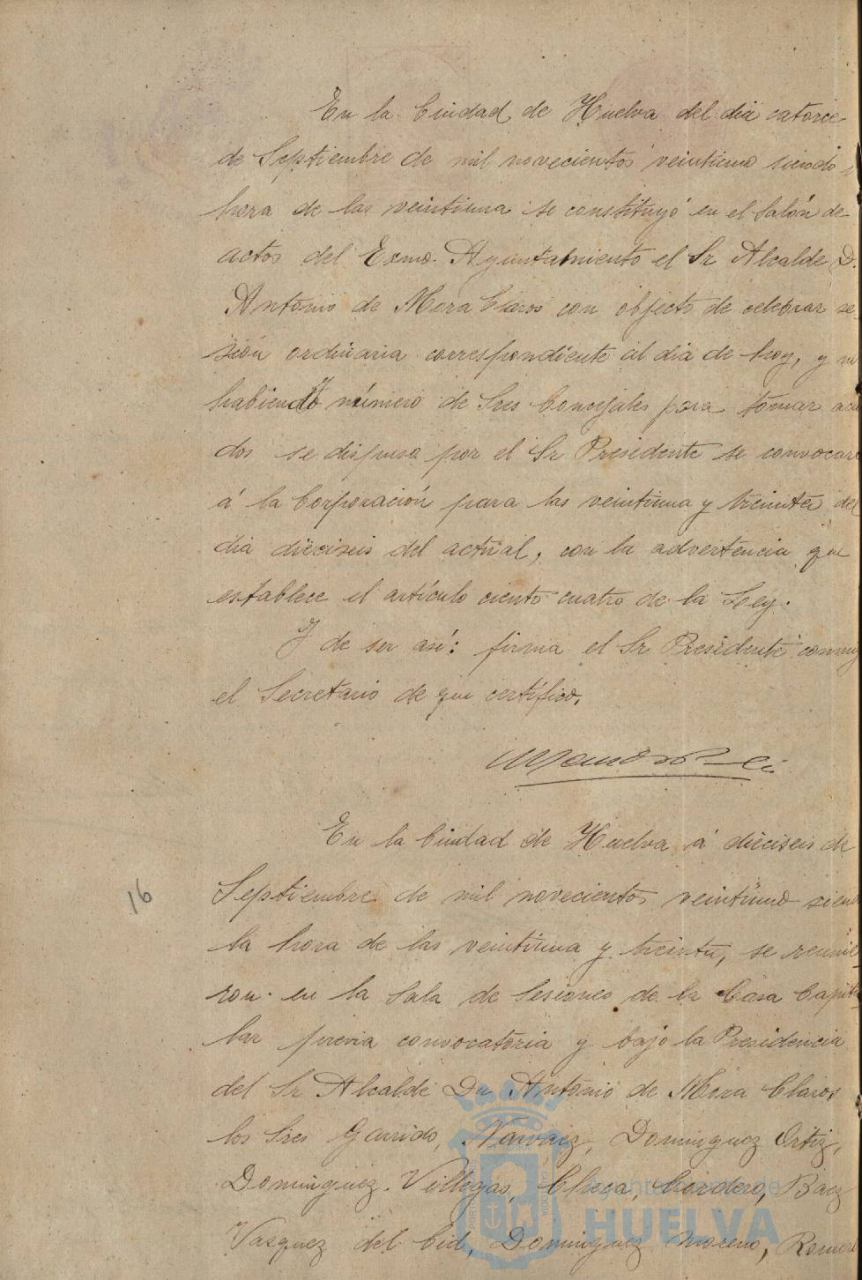 En la Ciudad de Huelva del dia catorce
de Septiembre de mil novecientos veintiuno siendo
hora de las veintiuna se constituyó en el Salón de
actos del Excmo. Ayuntamiento el Sr Alcalde D.
Antonio de Mora Claros con objecto de celebrar se
sión ordinaria correspondiente al dia de hoy, y no
habiendo número de Sres Concejales para tomar acu
dos se dispuso por el Sr Presidente se convocara
á la Corporación para las veintiuna y treinta del
dia dieciseis del actual, con la advertencia que
establece el artículo ciento cuatro de la Ley.
Y de ser asi: firma el Sr Presidente conmigo
el Secretario de que certifico.
16
En la Ciudad de Huelva á dieciseis de
Septiembre de mil novecientos veintiuno siend
la hora de las veintiuna y treinta, se reunie
ron en la Sala de Sesiones de la Casa Capitu
lar previa convocatoria y bajo la Presidencia
del Sr Alcalde Dn Antonio de Mora Claros
los Sres Garrido, Narvaez, Dominguez Ortiz,
Dominguez Villegas, Checa Cordero, Baez
Vasquez del Cid, Dominguez Moreno, Romer
Ayuntamiento de
HUELVA